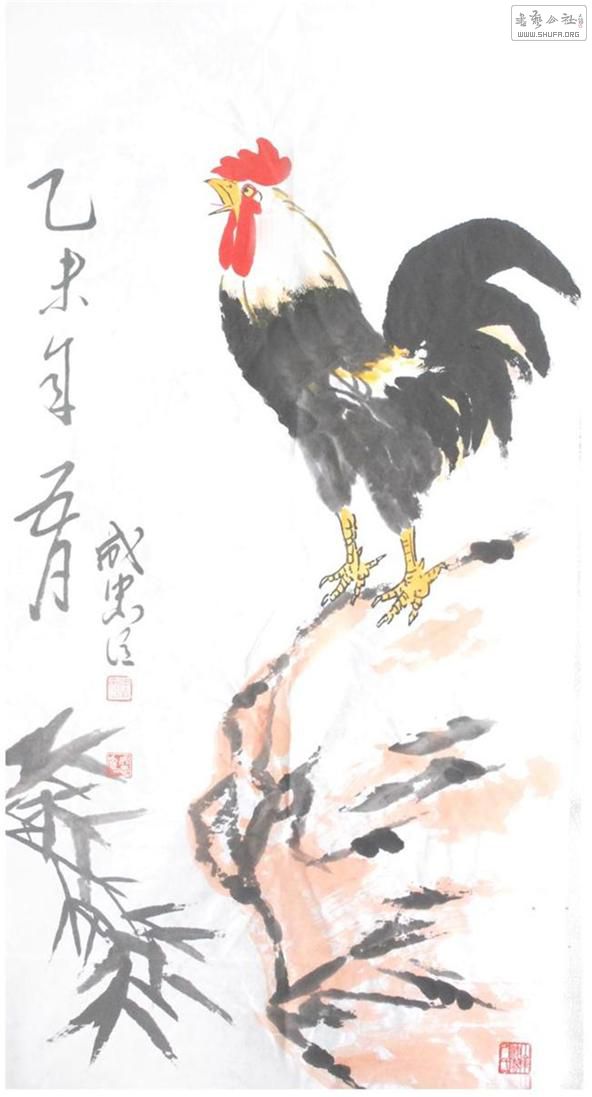 乙未年五月
成忠
书艺公社
WWW.SHUFA.ORG